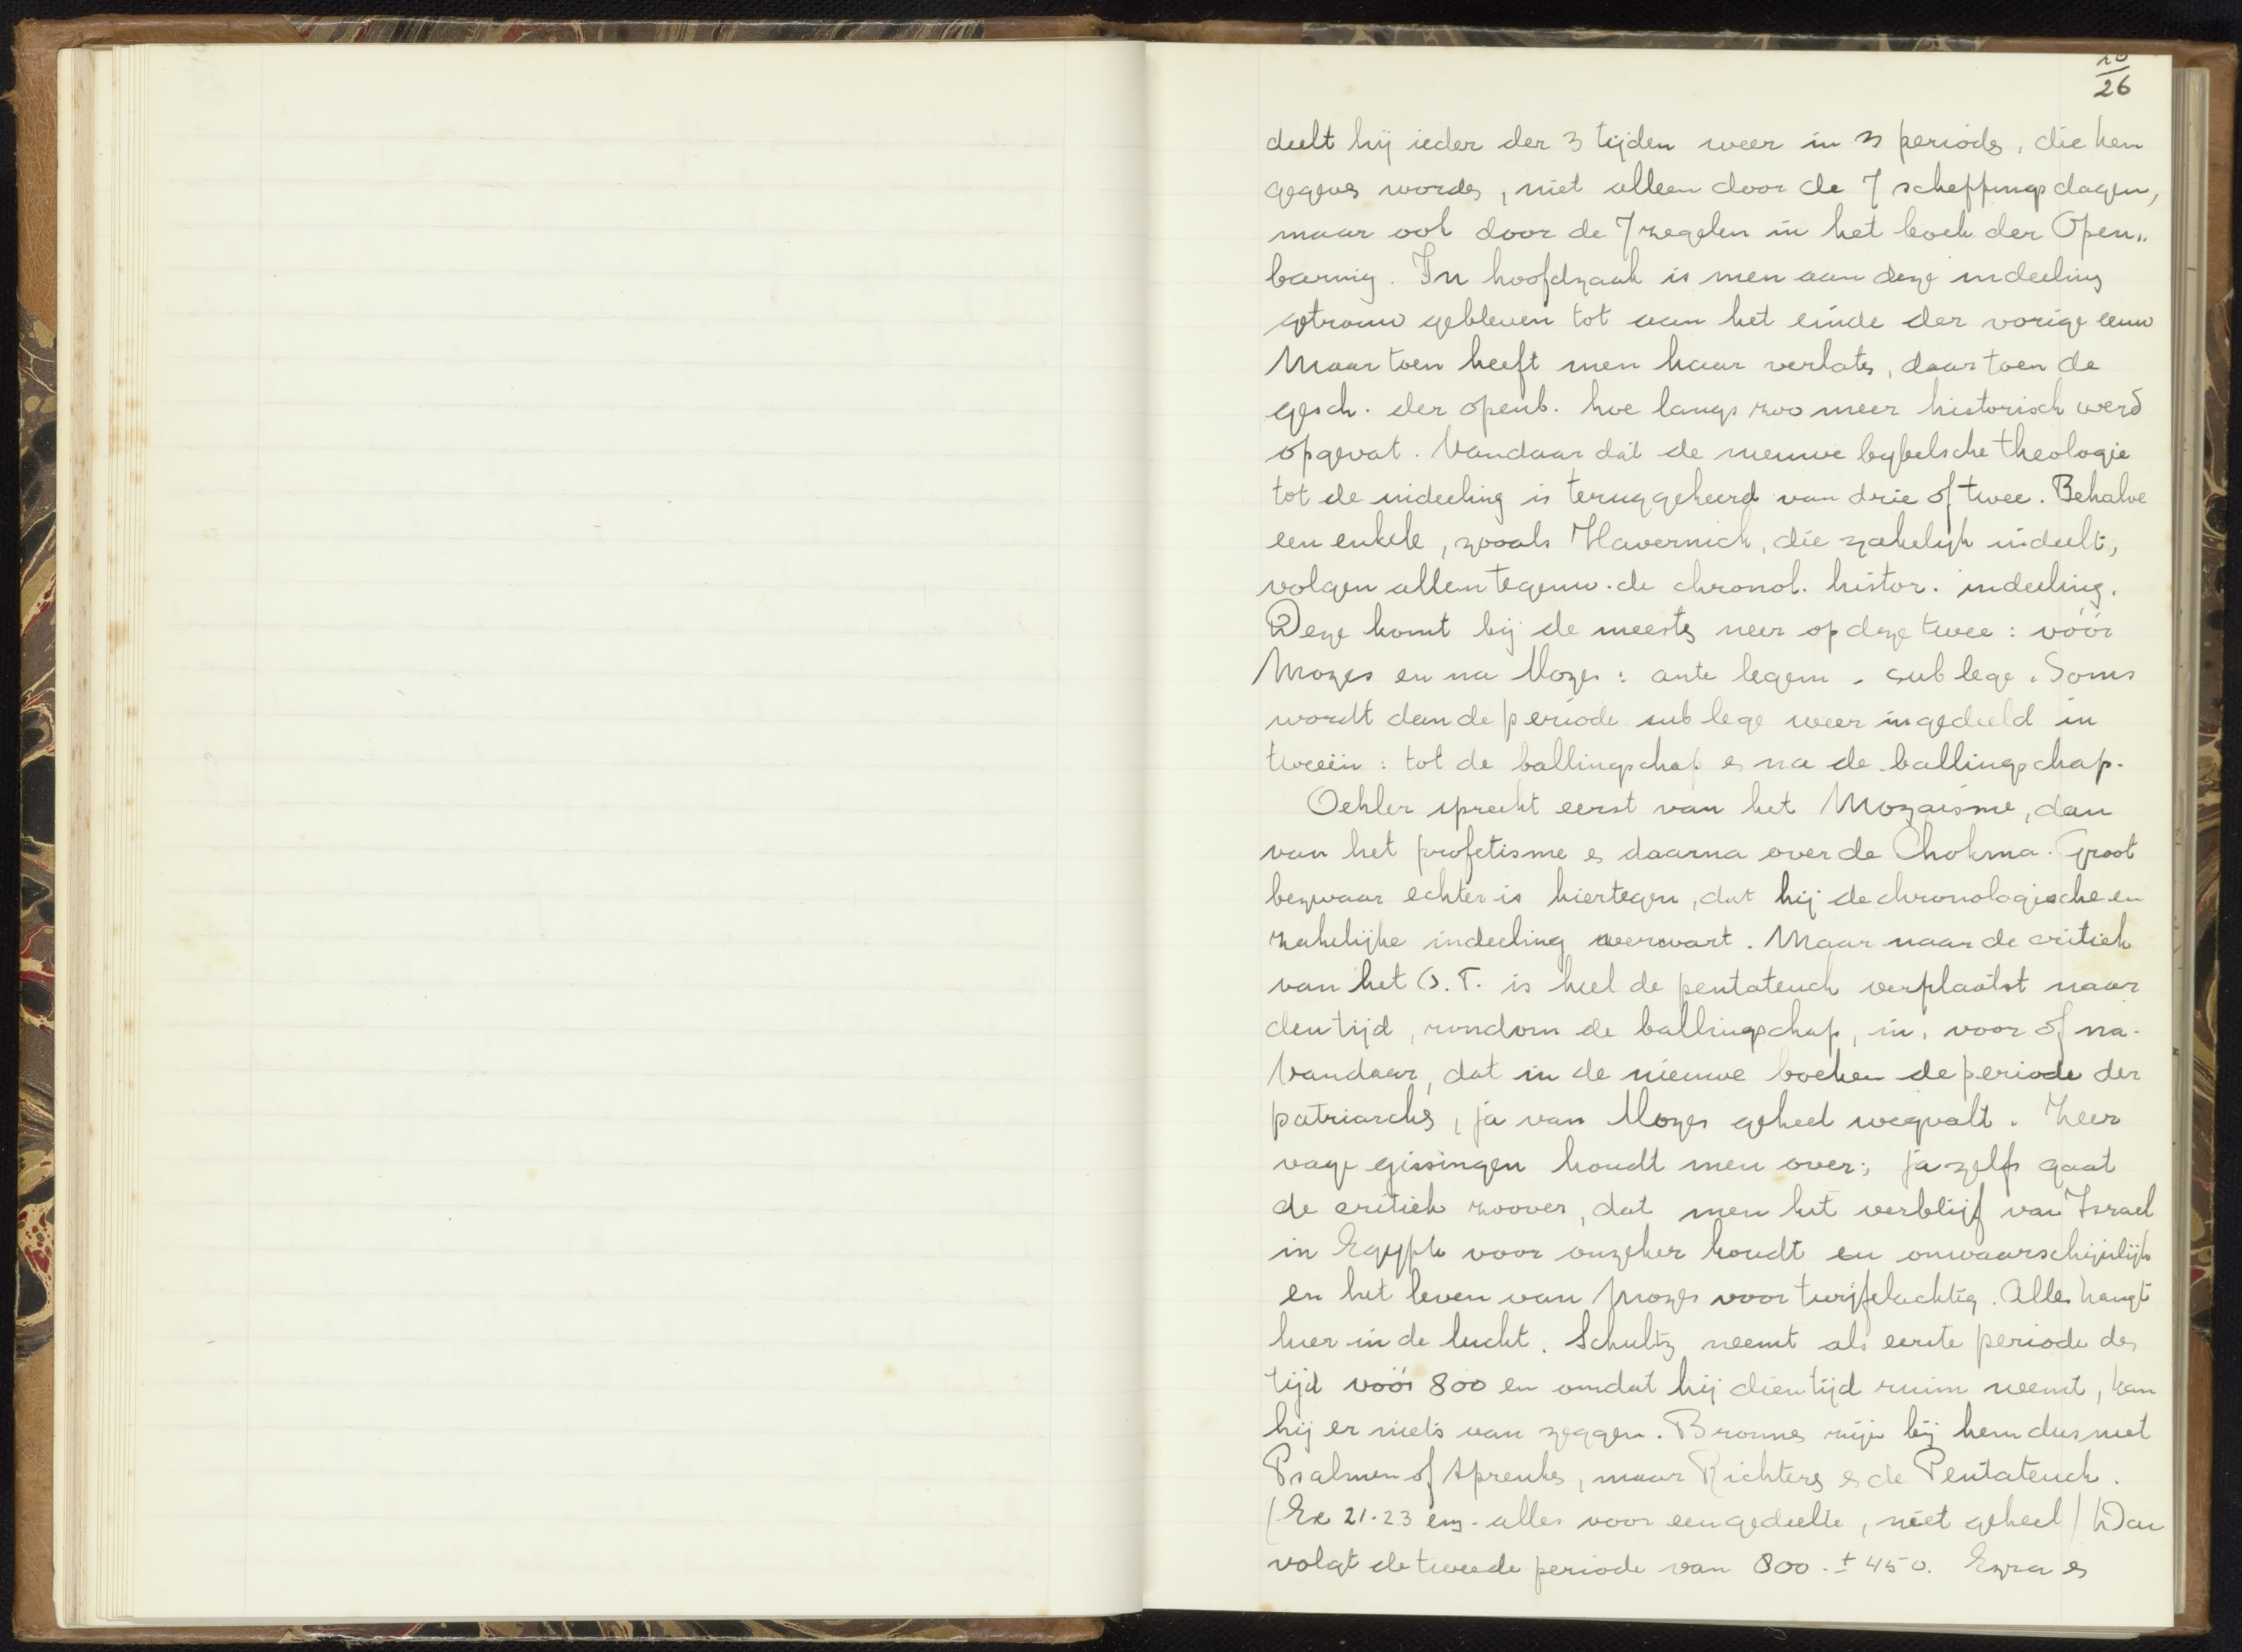 10
26
deelt hij ieder der 3 tijden weer in 3 periods, die hen
gegeves wordes, niet alleen door de 7 scheppingsdagen,
maar ook door de 7 zegelen in het boek der Open„
baring. In hoofdzaak is men aan deze indeeling
getrouw gebleven tot aan het einde der vorige eeuw
Maar toen heeft men haar verlates, daar toen de
gesch. der openb. hoe langs zoo meer historisch werd
opgevat. Vandaar dat de nieuwe bybelsche theologie
tot de indeeling is teruggekeerd van drie of twee. Behalve
een enkele, zooals Havernick, die zakelijk indeelt,
volgen allen tegenw. de chronol. histor. indeeling.
Deze komt bij de meestes neer op deze twee: vóór
Mozes en na Mozes: ante legem - sub lege. Soms
wordt dan de periode sub lege weer ingedeeld in
tweeën: tot de ballingschap es na de ballingschap.
Oehler spreekt eerst van het Mozaisme, dan
van het profetisme es daarna over de Chokma. Groot
bezwaar echter is hiertegen, dat hij de chronologische en
zakelijke indeeling verwart. Maar naar de critiek
van het O.T. is heel de pentateuch verplaatst naar
den tijd, rondom de ballingschap, in, voor of na.
Vandaar, dat in de nieuwe boeken de periode der
patriarchs, ja van Mozes geheel wegvalt. Zeer
vage gissingen houdt men over; ja zelfs gaat
de critiek zoover, dat men het verblijf van Israel
in Egypte voor onzeker houdt en onwaarschijnlijk
en het leven van Mozes voor twijfelachtig. Alles hangt
hier in de lucht. Schultz neemt als eerste periode des
tijd vóór 800 en omdat hij dien tijd ruim neemt, kan
hij er niets van zeggen. Bronnes zijn bij hem dus niet
Psalmen of Spreukes, maar Richters es de Pentateuch.
(Ex 21-23 enz. alles voor een gedeelte, niet geheel) Dan
volgt de tweede periode van 800 - ± 450. Ezra es